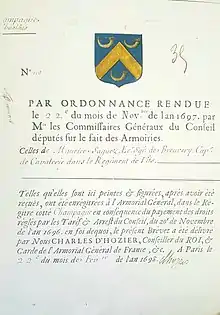 35
N.º 110
PAR ORDONNANCE RENDUE
le 22.e du mois de Nov.bre de l'an 1697. par
Mrs les Commissaires Généraux du Conseil
députés sur le fait des Armoiries.
Celles de Maurice
de Cavalerie dans le Regiment de
Telles qu'elles sont ici peintes & figurées, après avoir été
reçues, ont été enregistrées à l'Armorial Général, dans le
Registre cotté Champagne en conséquence du payement des droits
réglés par les Tarif & Arrest du Conseil, du 20e de Novembre
de l'an 1696. en foi de quoi, le présent Brevet a été délivré
par Nous CHARLES D'HOZIER, Conseiller du ROI, &
Garde de l'Armorial Général de France, &c. A Paris le
22.e du mois de de l'an 1698.